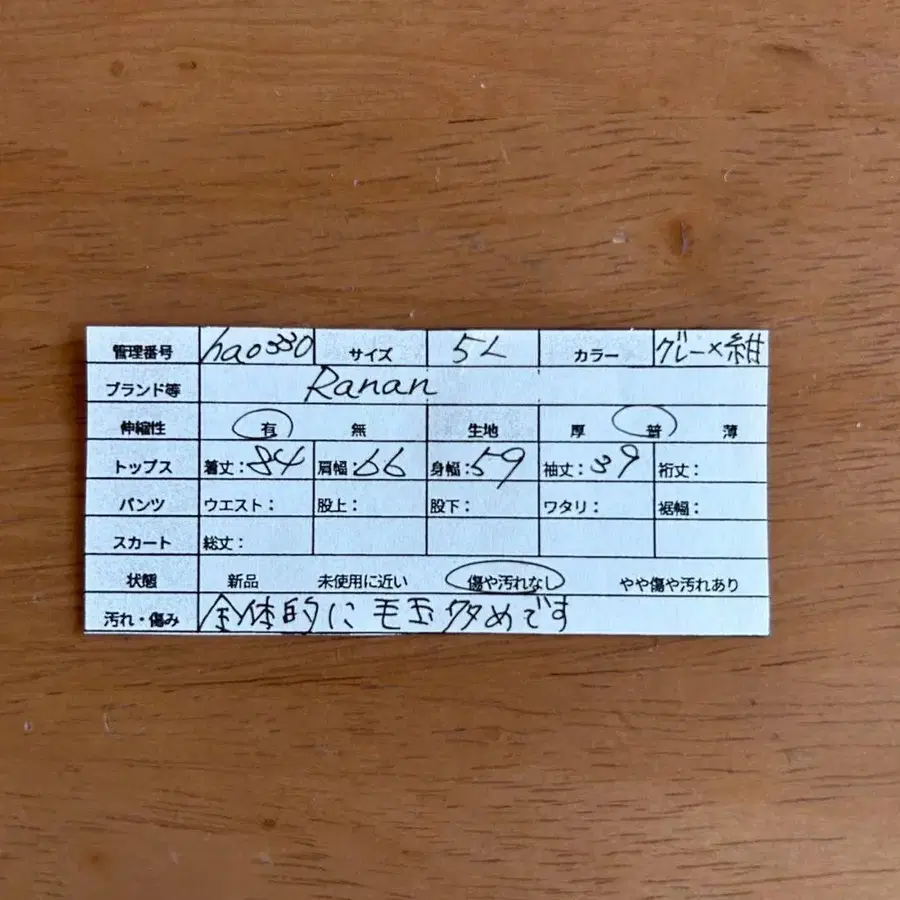 管理番号 hao330 サイズ 5L カラー グレー×紺
ブランド等 Ranan
伸縮性 有 無 生地 厚 普 薄
トップス 着丈:84 肩幅:66 身幅:59 袖丈:39 裄丈:
パンツ ウエスト: 股上: 股下: ワタリ: 裾幅:
スカート 総丈:
状態 新品 未使用に近い 傷や汚れなし やや傷や汚れあり
汚れ・傷み 全体的に毛玉多めです